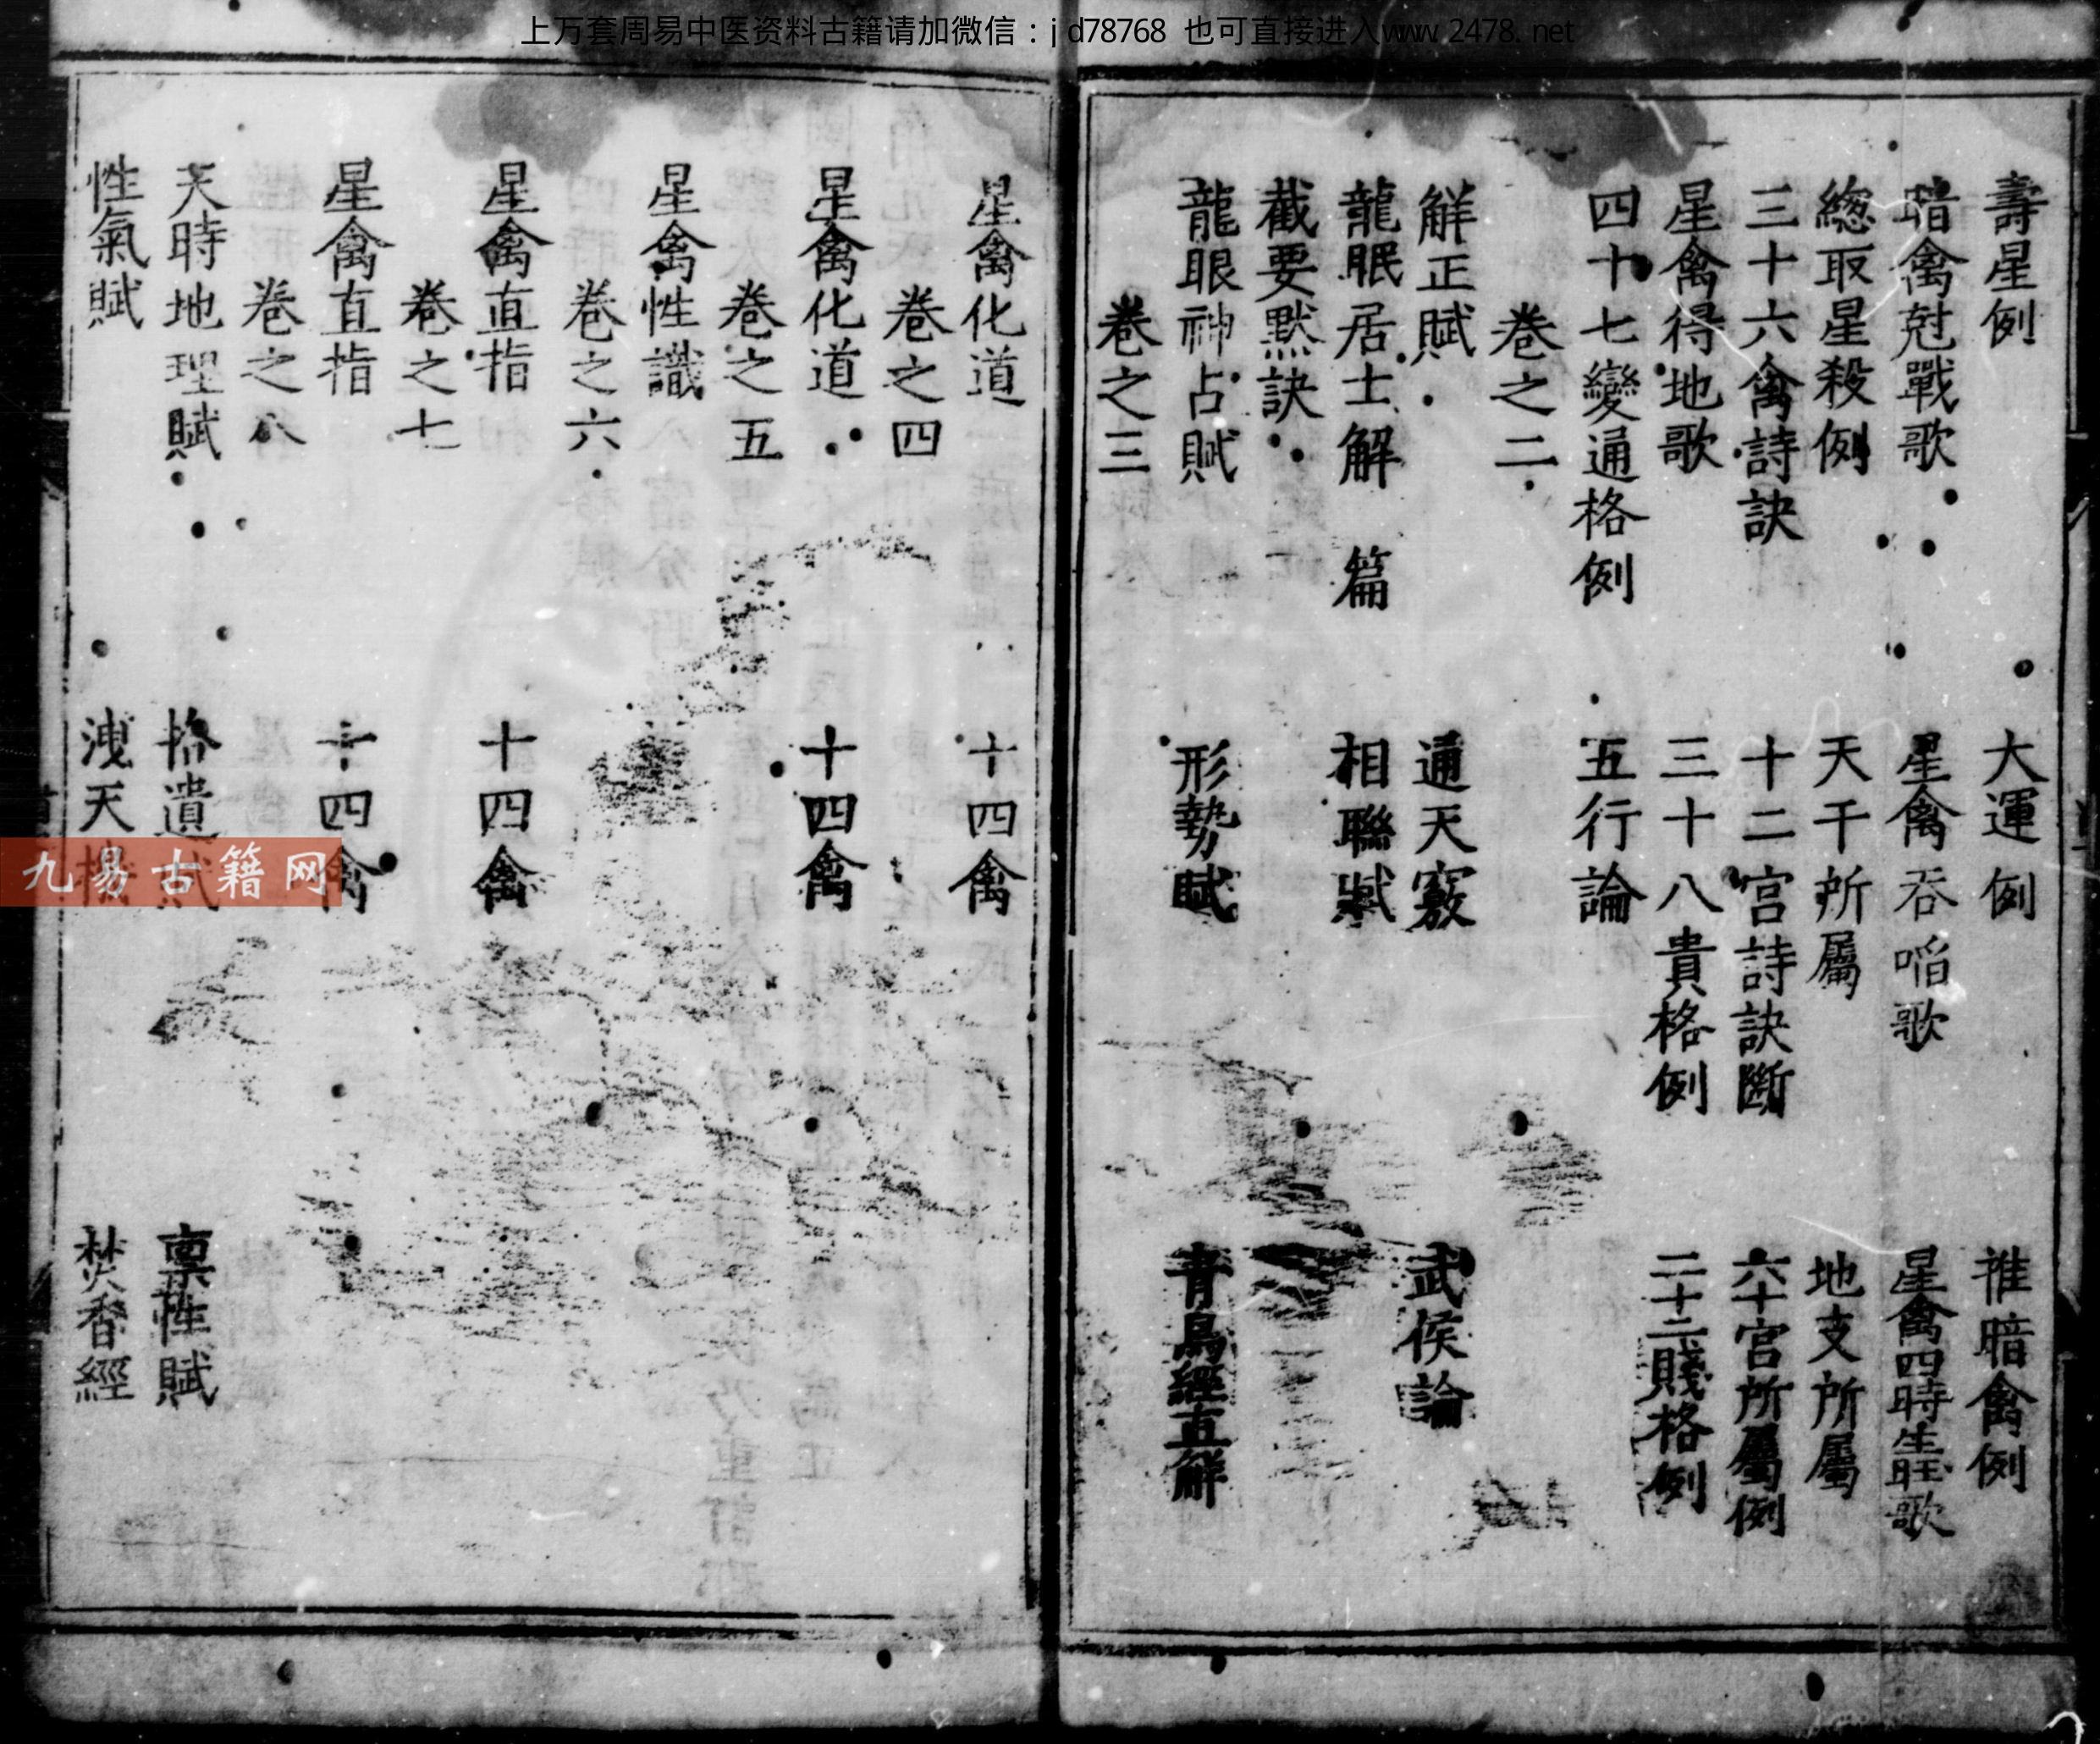 上万套周易中医资料古籍请加微信：jd78768 也可直接进入www.2478.net
壽星例 大運例 推暗禽例
暗禽尅戰歌 星禽吞啗歌 星禽四時生旺歌
緫取星殺例 天干所屬 地支所屬
三十六禽詩訣 十二宫詩訣斷 六十宫所屬例
星禽得地歌 三十八貴格例 二十二賤格例
四十七變通格例 五行論
卷之二
觧正賦 通天竅 武侯論
龍眠居士解 篇 相聯賦
截要默訣
龍眼神占賦 形勢賦 青鳥經直觧
卷之三
星禽化道 十四禽
卷之四
星禽化道 十四禽
卷之五
星禽性識
卷之六
星禽直指 十四禽
卷之七
星禽直指 十四禽
卷之八
天時地理賦 拾遺賦 禀性賦
性氣賦 洩天機 焚香經
九易古籍网